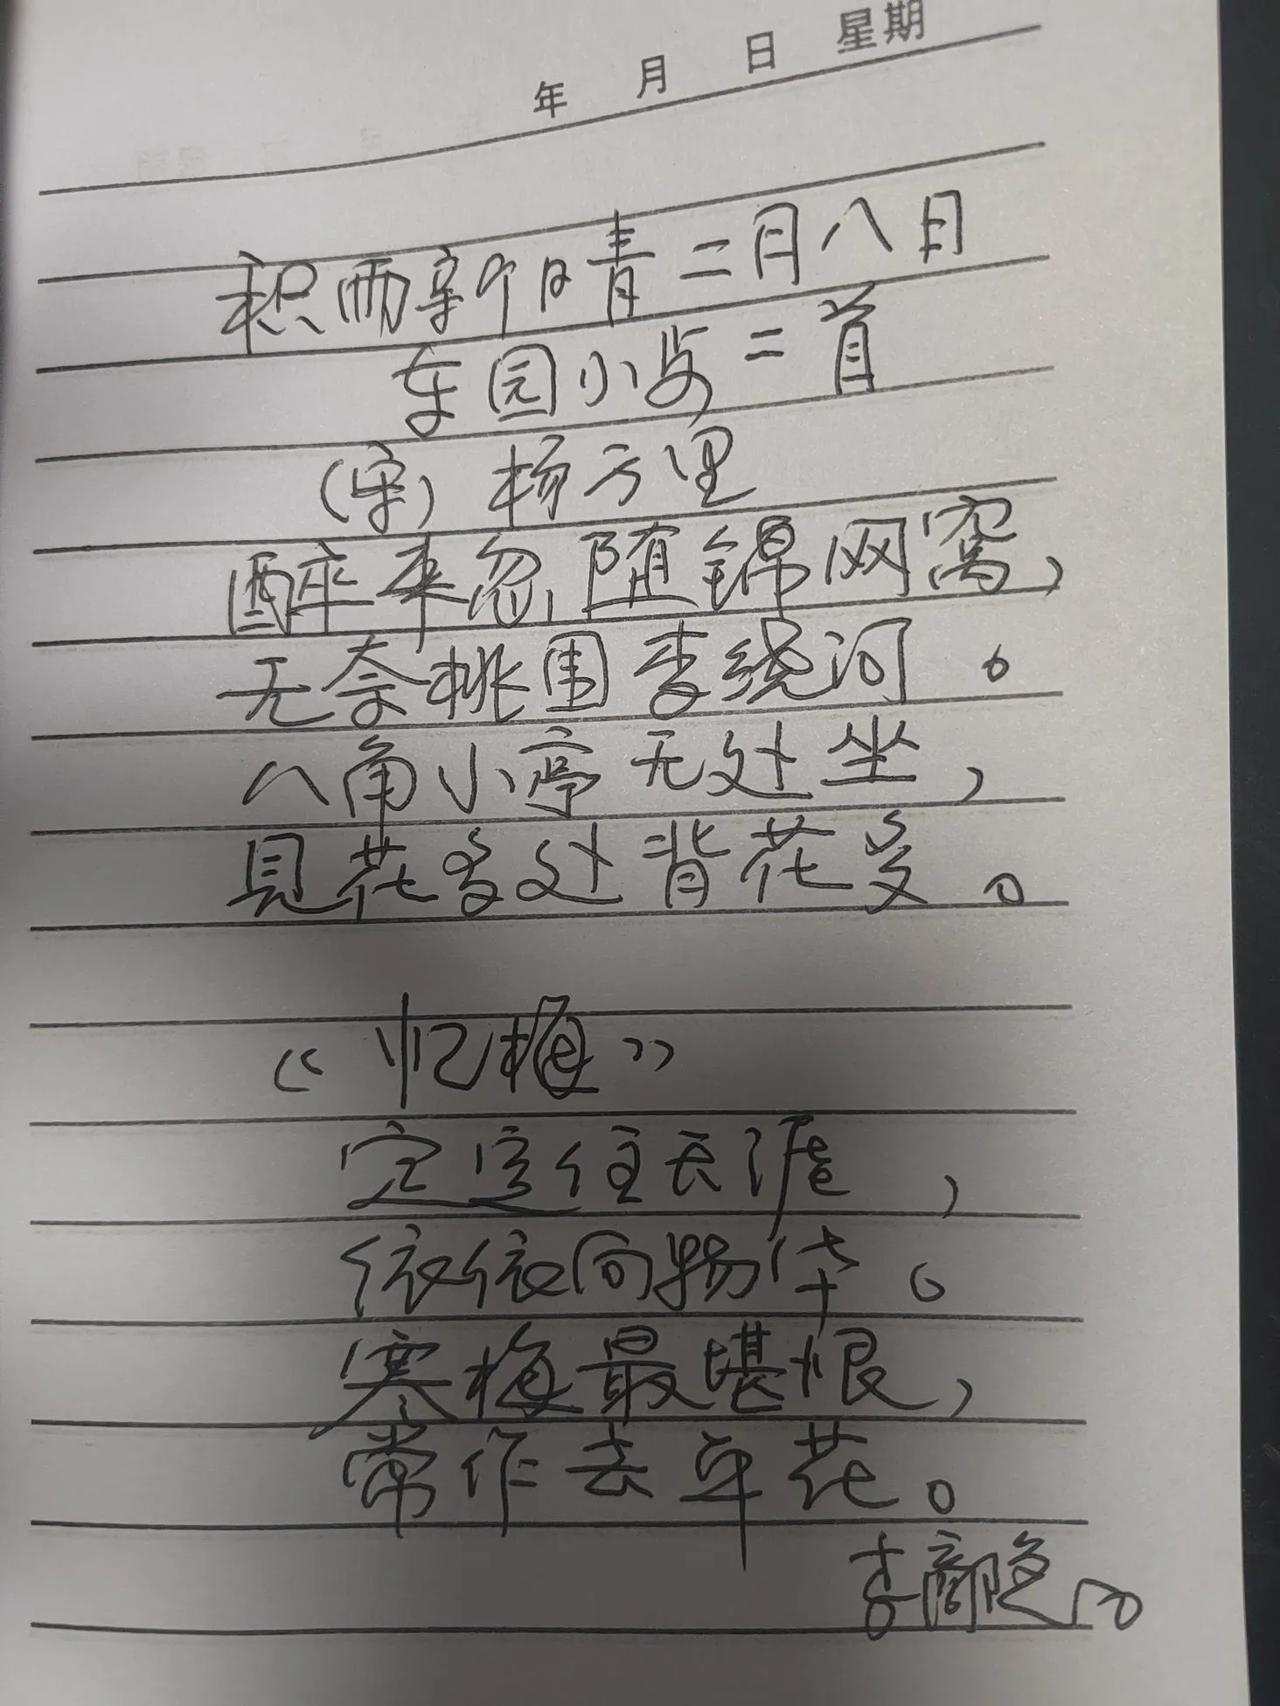 年 月 日 星期
积雨新晴二月八日
东园小步二首
(宋)杨万里
醉来忽随锦网窝,
无奈桃围李绕河。
八角小亭无处坐,
见花多处背花多。
《忆梅》
定定住天涯,
依依向物华。
寒梅最堪恨,
常作去年花。
李商隐